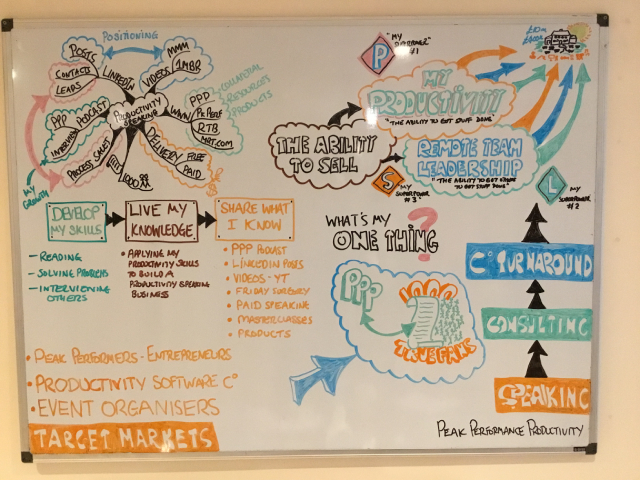 POSITIONING
POSTS
CONTACTS
LEADS
LINKEDIN
VIDEOS
MMM
1MBR
PPP
PODCAST
INTERVIEW
PRODUCTIVITY
SPEAKING
WWW
PPD
RTB
COLLATERAL
RESOURCES
PRODUCTS
PROCESS
SALES
1000
DELIVERY
FREE
PAID
MY
GROWTH
$
"MY
SUPERPOWER"
#1
P
MY
PRODUCTIVITY
"THE ABILITY TO GET STUFF DONE"
THE ABILITY
TO SELL
REMOTE TEAM
LEADERSHIP
"THE ABILITY TO GET OTHERS
TO GET STUFF DONE"
S
MY
SUPERPOWER
#3
L
MY
SUPERPOWER
#2
DEVELOP
MY SKILLS
LIVE MY
KNOWLEDGE
SHARE WHAT
I KNOW
- READING
- SOLVING PROBLEMS
- INTERVIEWING
OTHERS
• APPLYING MY
PRODUCTIVITY SKILLS
TO BUILD A
PRODUCTIVITY SPEAKING
BUSINESS
• PPP PODCAST
• LINKEDIN POSTS
• VIDEOS - YT
• FRIDAY SURGERY
• PAID SPEAKING
• MASTERCLASSES
• PRODUCTS
WHAT'S MY
ONE THING
?
PPP
1000
TRUE FANS
C° TURNAROUND
CONSULTING
SPEAKING
• PEAK PERFORMERS - ENTREPRENEURS
• PRODUCTIVITY SOFTWARE C°
• EVENT ORGANISERS
TARGET MARKETS
PEAK PERFORMANCE PRODUCTIVITY